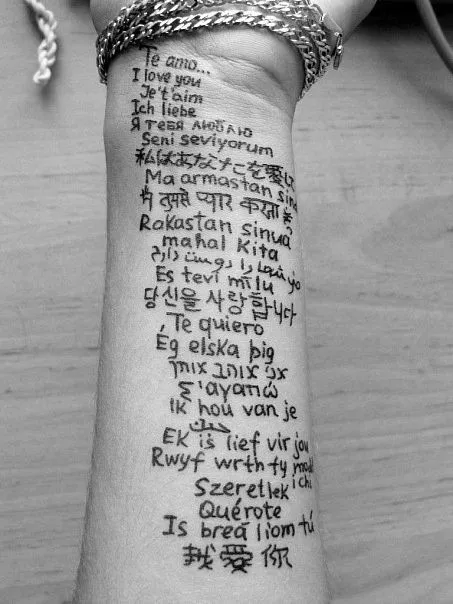 Te amo...
I love you
Je't'aim
Ich liebe
Я тебя люблю
Seni seviyorum
私はあなたを愛し
Ma armastan sind
तुमसे प्यार करता
Rakastan sinua
mahal Kita
Es tevi mīlu
당신을 사랑합니다
Te quiero
Ég elska þig
אני אוהב אותך
Σ'αγαπώ
Ik hou van je
Ek is lief vir jou
Rwyf wrth fy modd
i chi
Szeretlek
Quérote
Is breá liom tú
我愛你